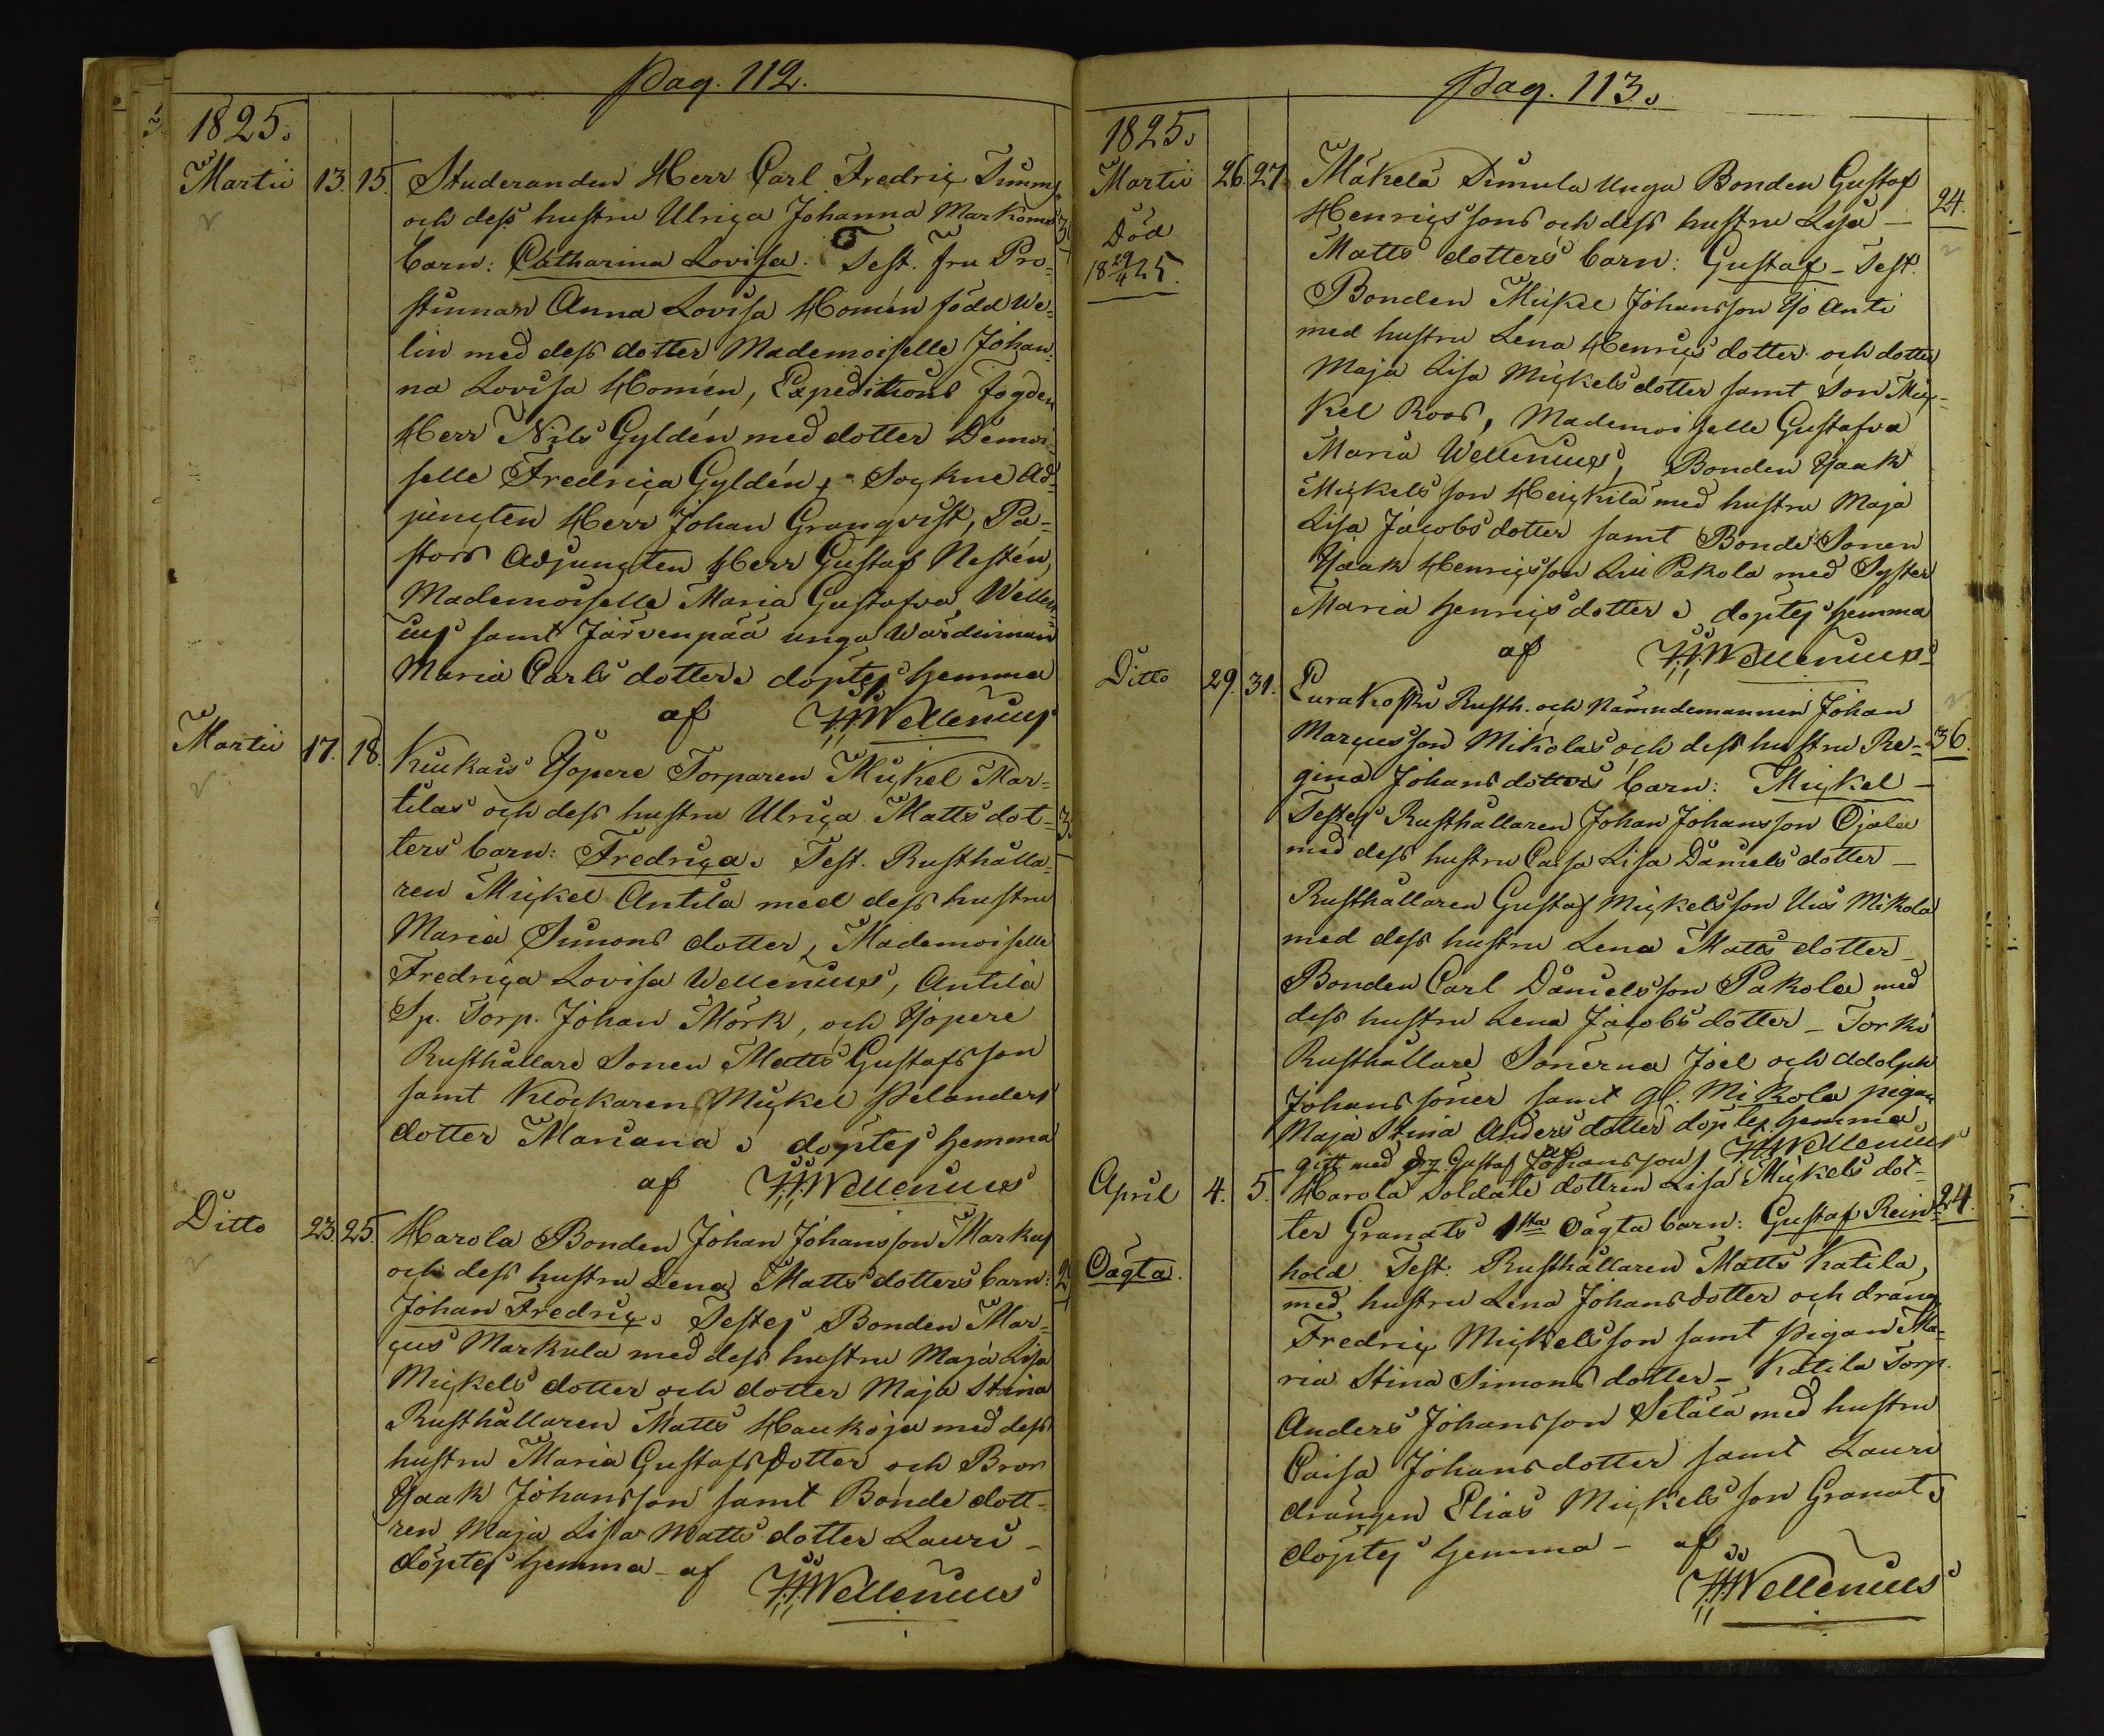 Pag. 112.
1825.
Martii 13. 15. Studeranden Herr Carl Fredric
och dess hustru Ulrica Johanna
barn: Catharina Lovisa. Test. Fru Pro-
stinnan Anna Lovisa Homén född We-
lin med dess dotter Mademoiselle Johan-
na Lovisa Homén, Expeditions Fogden
Herr Nils Gyldén med dotter Demoi-
selle Fredrica Gyldén, Sockne Ad-
juncten Herr Johan Granqvist, Pa-
stors Adjuncten Herr Gustaf Nestén,
Mademoiselle Maria Gustafva Welleni-
us samt Järvenpää unga Wärdinnan
Maria Carls dotter, döptes hemma
af HHWellenius
Martii 17. 18. Kiukais Yjopere Torparen Mickel Mar-
tilas och dess hustru Ulrica Matts dot-
ters barn: Fredrica. Test. Rusthålla-
ren Mickel Antila med dess hustru
Maria Simons dotter, Mademoiselle
Fredrica Lovisa Wellenius, Antila
Sp. Torp. Johan Mörk, och Yjopere
Rusthållare Sonen Matts Gustafsson
samt Klockaren Mickel Pelanders
dotter Mariana, döptes hemma
af HHWellenius
Ditto 23. 25. Harola Bonden Johan Johansson Markus
och dess hustru Lena Matts dotters barn:
Johan Fredric. Testes Bonden Mar-
cus Markula med dess hustru Maja Lisa
Mickels dotter och dotter Maja Stina
Rusthållaren Matts Haukoja med dess
hustru Maria Gustafs dotter och Bror
Isaak Johansson samt Bonde dott-
ren Maja Lisa Matts dotter Lauri -
döptes hemma - af HHWellenius
Pag. 113.
1825.
Martii 26. 27. Mäkelä Simula unga Bonden Gustaf 24.
Henricssons och dess hustru Lisa -
Död
Matts dotters barn: Gustaf - Test.
18 29/4 25.
Bonden Mickel Johansson Yjo Anti
med hustru Lena Henrics dotter och dotter
Maja Lisa Mickels dotter samt Son Mic-
kel Roos, Mademoiselle Gustafva
Maria Wellenius, Bonden Isaak
Mickels son Heickilä med hustru Maja
Lisa Jacobs dotter samt Bonde Sonen
Isaak Henricsson Liu Pakola med Syster
Maria Henrics dotter, döptes hemma
af HHWellenius
Ditto 29. 31. Eurakoski Rusth. och Nämndemannen Johan
Marcusson Mikolas och dess hustru Re- 36.
gina Johans dotters barn: Mickel -
Testes Rusthållaren Johan Johansson Ojala
med dess hustru Caisa Lisa Daniels dotter -
Rusthållaren Gustaf Mickelsson Uus Mikola
med dess hustru Lena Matts dotter -
Bonden Carl Danielsson Pakola med
dess hustru Lena Jacobs dotter - Torki
Rusthållare Sönerna Joel och Adolph
Johans söner samt Gl. Mikola pigan
Maja Stina Anders dotter döptes hemma
gift med drg. Gustaf Johansson af HHWellenius
April 4. 5. Harola Soldate dottren Lisa Mickels dot-
ter Granats 1sta Oägta barn: Gustaf Rein- 24.
Oägta.
hold. Test: Rusthållaren Matts Katila,
med hustru Lena Johans dotter och dräng
Fredric Mickelsson samt Pigan Ma-
ria Stina Simons dotter - Katila Torp.
Anders Johansson Setälä med hustru
Caisa Johans dotter samt Lauri
drängen Elias Mickels son Granat,
döptes hemma - af
HHWellenius